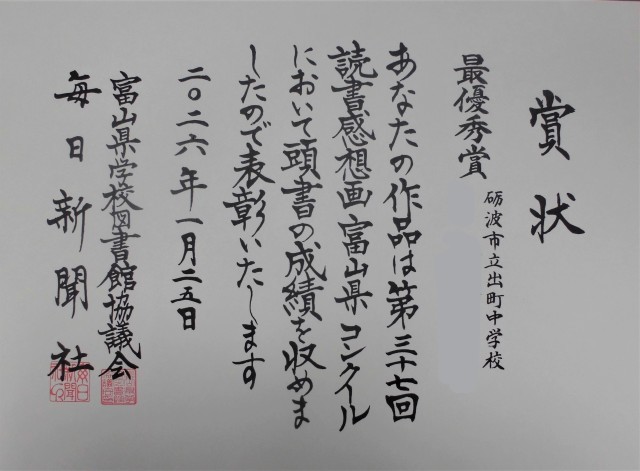 賞状
最優秀賞
砺波市立出町中学校
あなたの作品は第三十七回
読書感想画富山県コンクール
において頭書の成績を収めま
したので表彰いたします
二〇二六年一月二五日
富山県学校図書館協議会
毎日新聞社